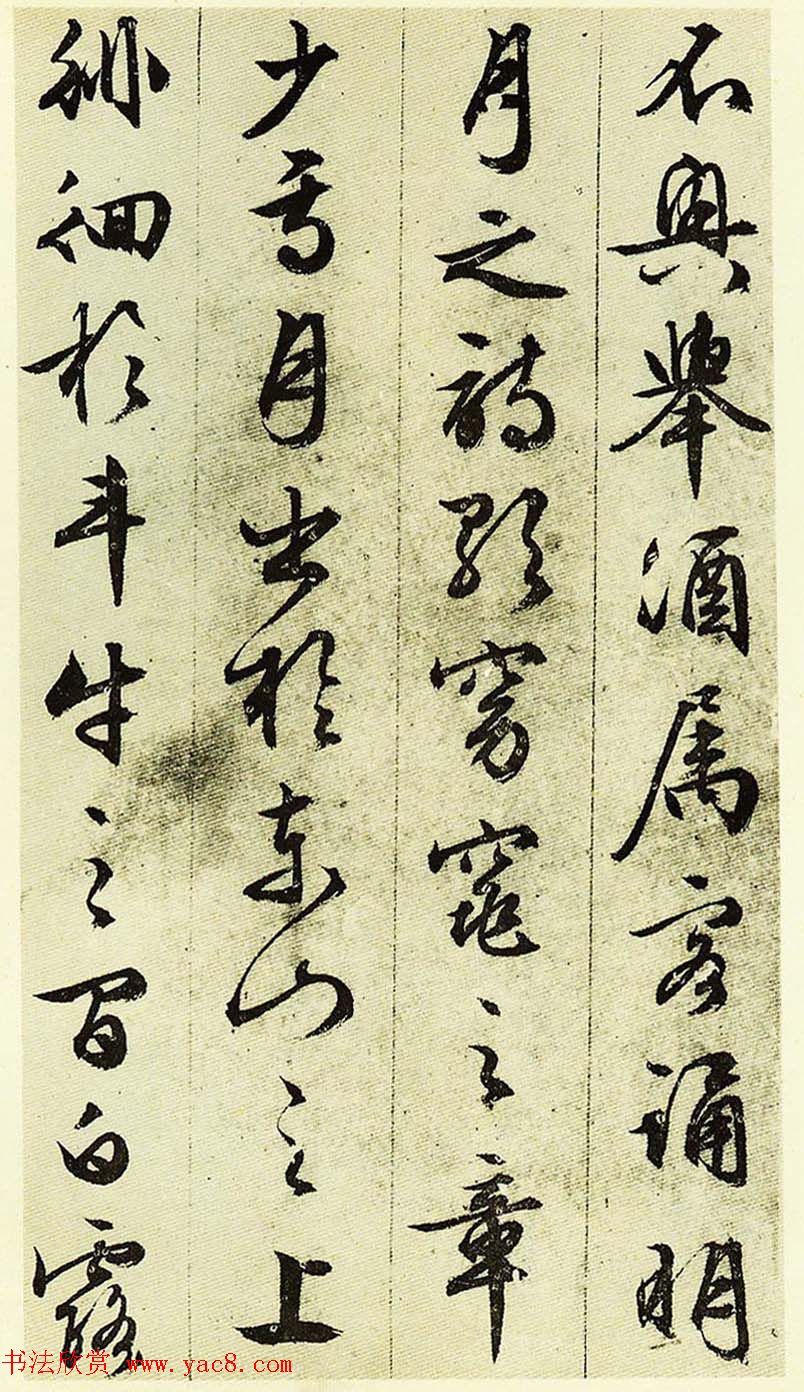 不興舉酒属客誦明
月之詩歌窈窕之章
少焉月出於東山之上
徘徊於斗牛之間白露
书法欣赏 www.yac8.com